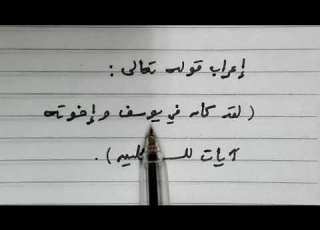 إعراب قوله تعالى :
( لقد كان في يوسف وإخوته
آيات للسائلين ) .